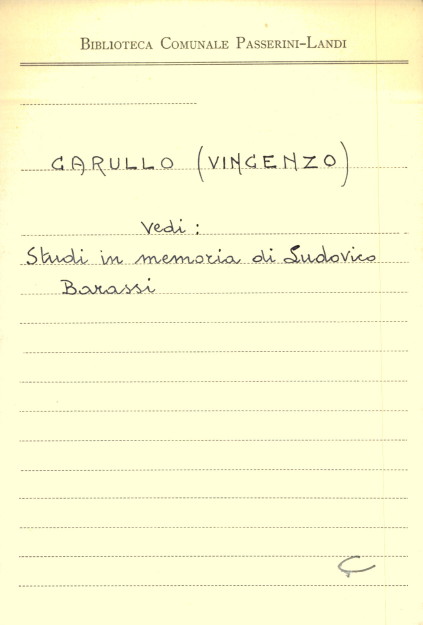 BIBLIOTECA COMUNALE PASSERINI-LANDI
CARULLO (VINCENZO)
Vedi :
Studi in memoria di Ludovico
Barassi